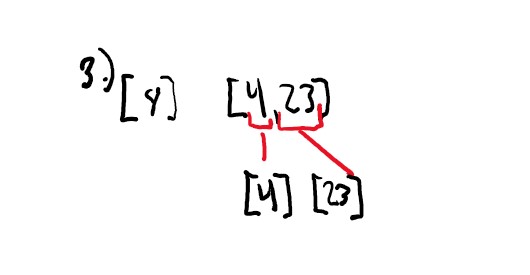 3.) [4] [4,23]
[4] [23]